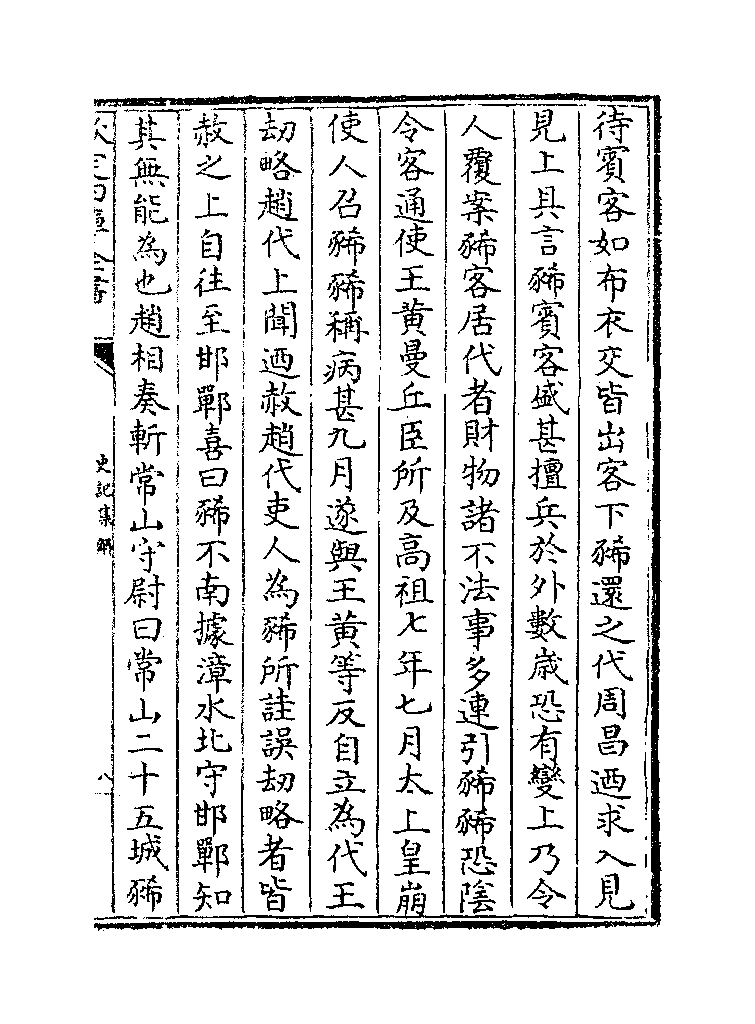 待賓客如布衣交皆出客下豨還之代周昌迺求入見
見上具言豨賓客盛甚擅兵於外數嵗恐有變上乃令
人覆案豨客居代者財物諸不法事多連引豨豨恐隂
令客通使王黄曼丘臣所及高祖七年七月太上皇崩
使人召豨豨稱病甚九月遂與王黄等反自立為代王
刼略趙代上聞迺赦趙代吏人為豨所詿誤刼略者皆
赦之上自往至邯鄲喜曰豨不南據漳水北守邯鄲知
其無能為也趙相奏斬常山守尉曰常山二十五城豨
欽定四庫全書
史記集解
八